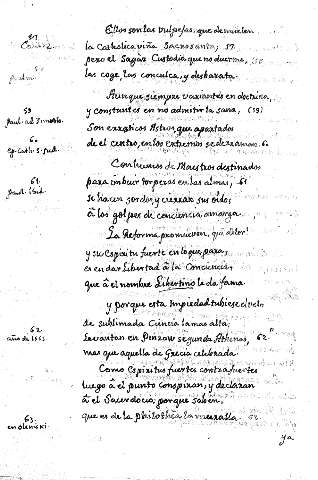 Estos son las Vulpejas, que demuelen
la Catholica viña Sacrosanta; 57.
pero el Sagàz Custodio que no duerme,
las coge, las conculca, y desbarata.
Aunque siempre variantes en doctrina,
59.
y constantes en no admitir la sana, (59)
Son erraticos Astros, que apartados
60.
de el centro, en los extremos se derraman. 60
Con humos de Maestros destinados
61.
para imbuir torpezas en las almas, 61
se hacen sordos, y cierran sus oidos
à los golpes de conciencia amarga.
La Reforma promueven, què dolor!
y su Espiritu fuerte en lo que para,
es en dar Libertad à la Conciencia,
que à el nombre Libertino le da fama
y porque esta Impiedad tubiese el velo
62.
de sublimada Ciencia la mas alta,
año de 1565
levantan en Pinzow segunda Athenas, 62.
mas que aquella de Grecia celebrada.
Como Espiritus fuertes contra fuertes
luego à el punto conspiran, y declaran
à el Sacerdocio, porque saben,
63.
que es de la philosophia la muralla.
ya